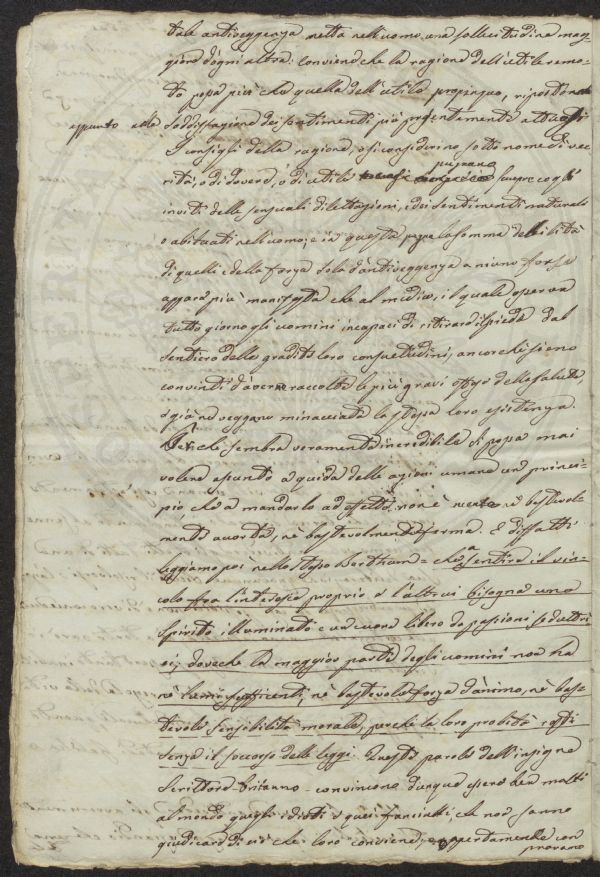 tale antiveggenza metta nell'uomo una sollecitudine mag-
giore d'ogni altra: conviene che la ragione dell'utile remo-
to possa più che quella dell'utile propinquo, riposti
appunto alla soddisfazione dei sentimenti più presentemente attuosi
I consigli della ragione, o si considerino sotto nome di ve-
rità, o di dovere, o di utile pugnano sempre cogli
inviti delle sensuali dilettazioni, e dei sentimenti naturali
o abituati nell'uomo; e in questa pugna la somma debilità
di quelli e della forza sola d'antiveggenza a niuno forse
appare più manifesta che al medico, il quale osserva
tutto giorno gli uomini incapaci di ritirare il piede dal
sentiero delle gradite loro consuetudini, ancorchè sieno
convinti d'averne raccolte le più gravi offese della salute,
o già ne veggano minacciata la stessa loro esistenza.
Sicchè sembra veramente incredibile si possa mai
volere assunto a guida delle azioni umane un princi-
pio che a mandarlo ad effetto, non è mente nè bastevol-
mente accorta, nè bastevolmente ferma. E diffatti
leggiamo poi nello stesso Bentham = che a sentire il vin-
colo fra l'interesse proprio e l'altrui bisogna uno
spirito illuminato e un cuore libero da passioni sedutri-
ci; dovechè la maggior parte degli uomini non ha
nè lumi sufficienti, nè bastevole forza d'animo, nè bas-
tevole sensibilità morale, perchè la loro probità resti
senza il soccorso delle leggi. Queste parole dell'insigne
Scrittore Britanno convincono dunque essere ben molti
al mondo quegli idioti e quei fanciulli, che non sanno
giudicare di ciò che loro conviene, e apertamente con
provano